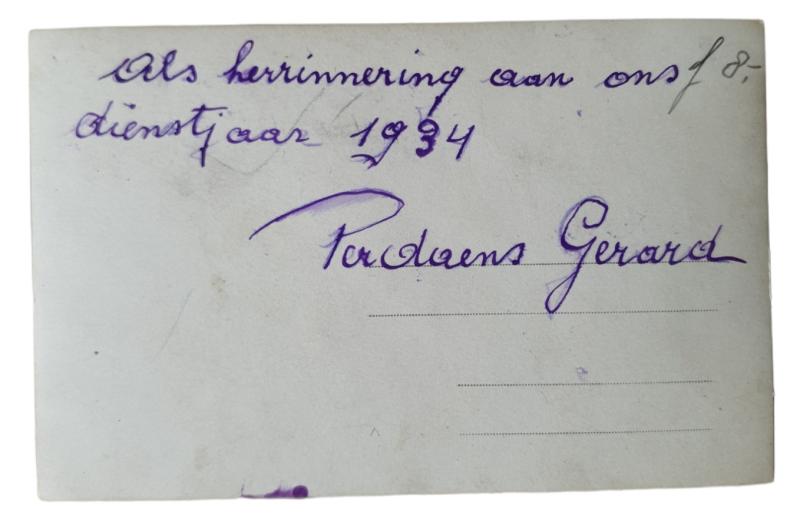 Als herrinnering aan ons f 8.-
dienstjaar 1934
Perdaens Gerard